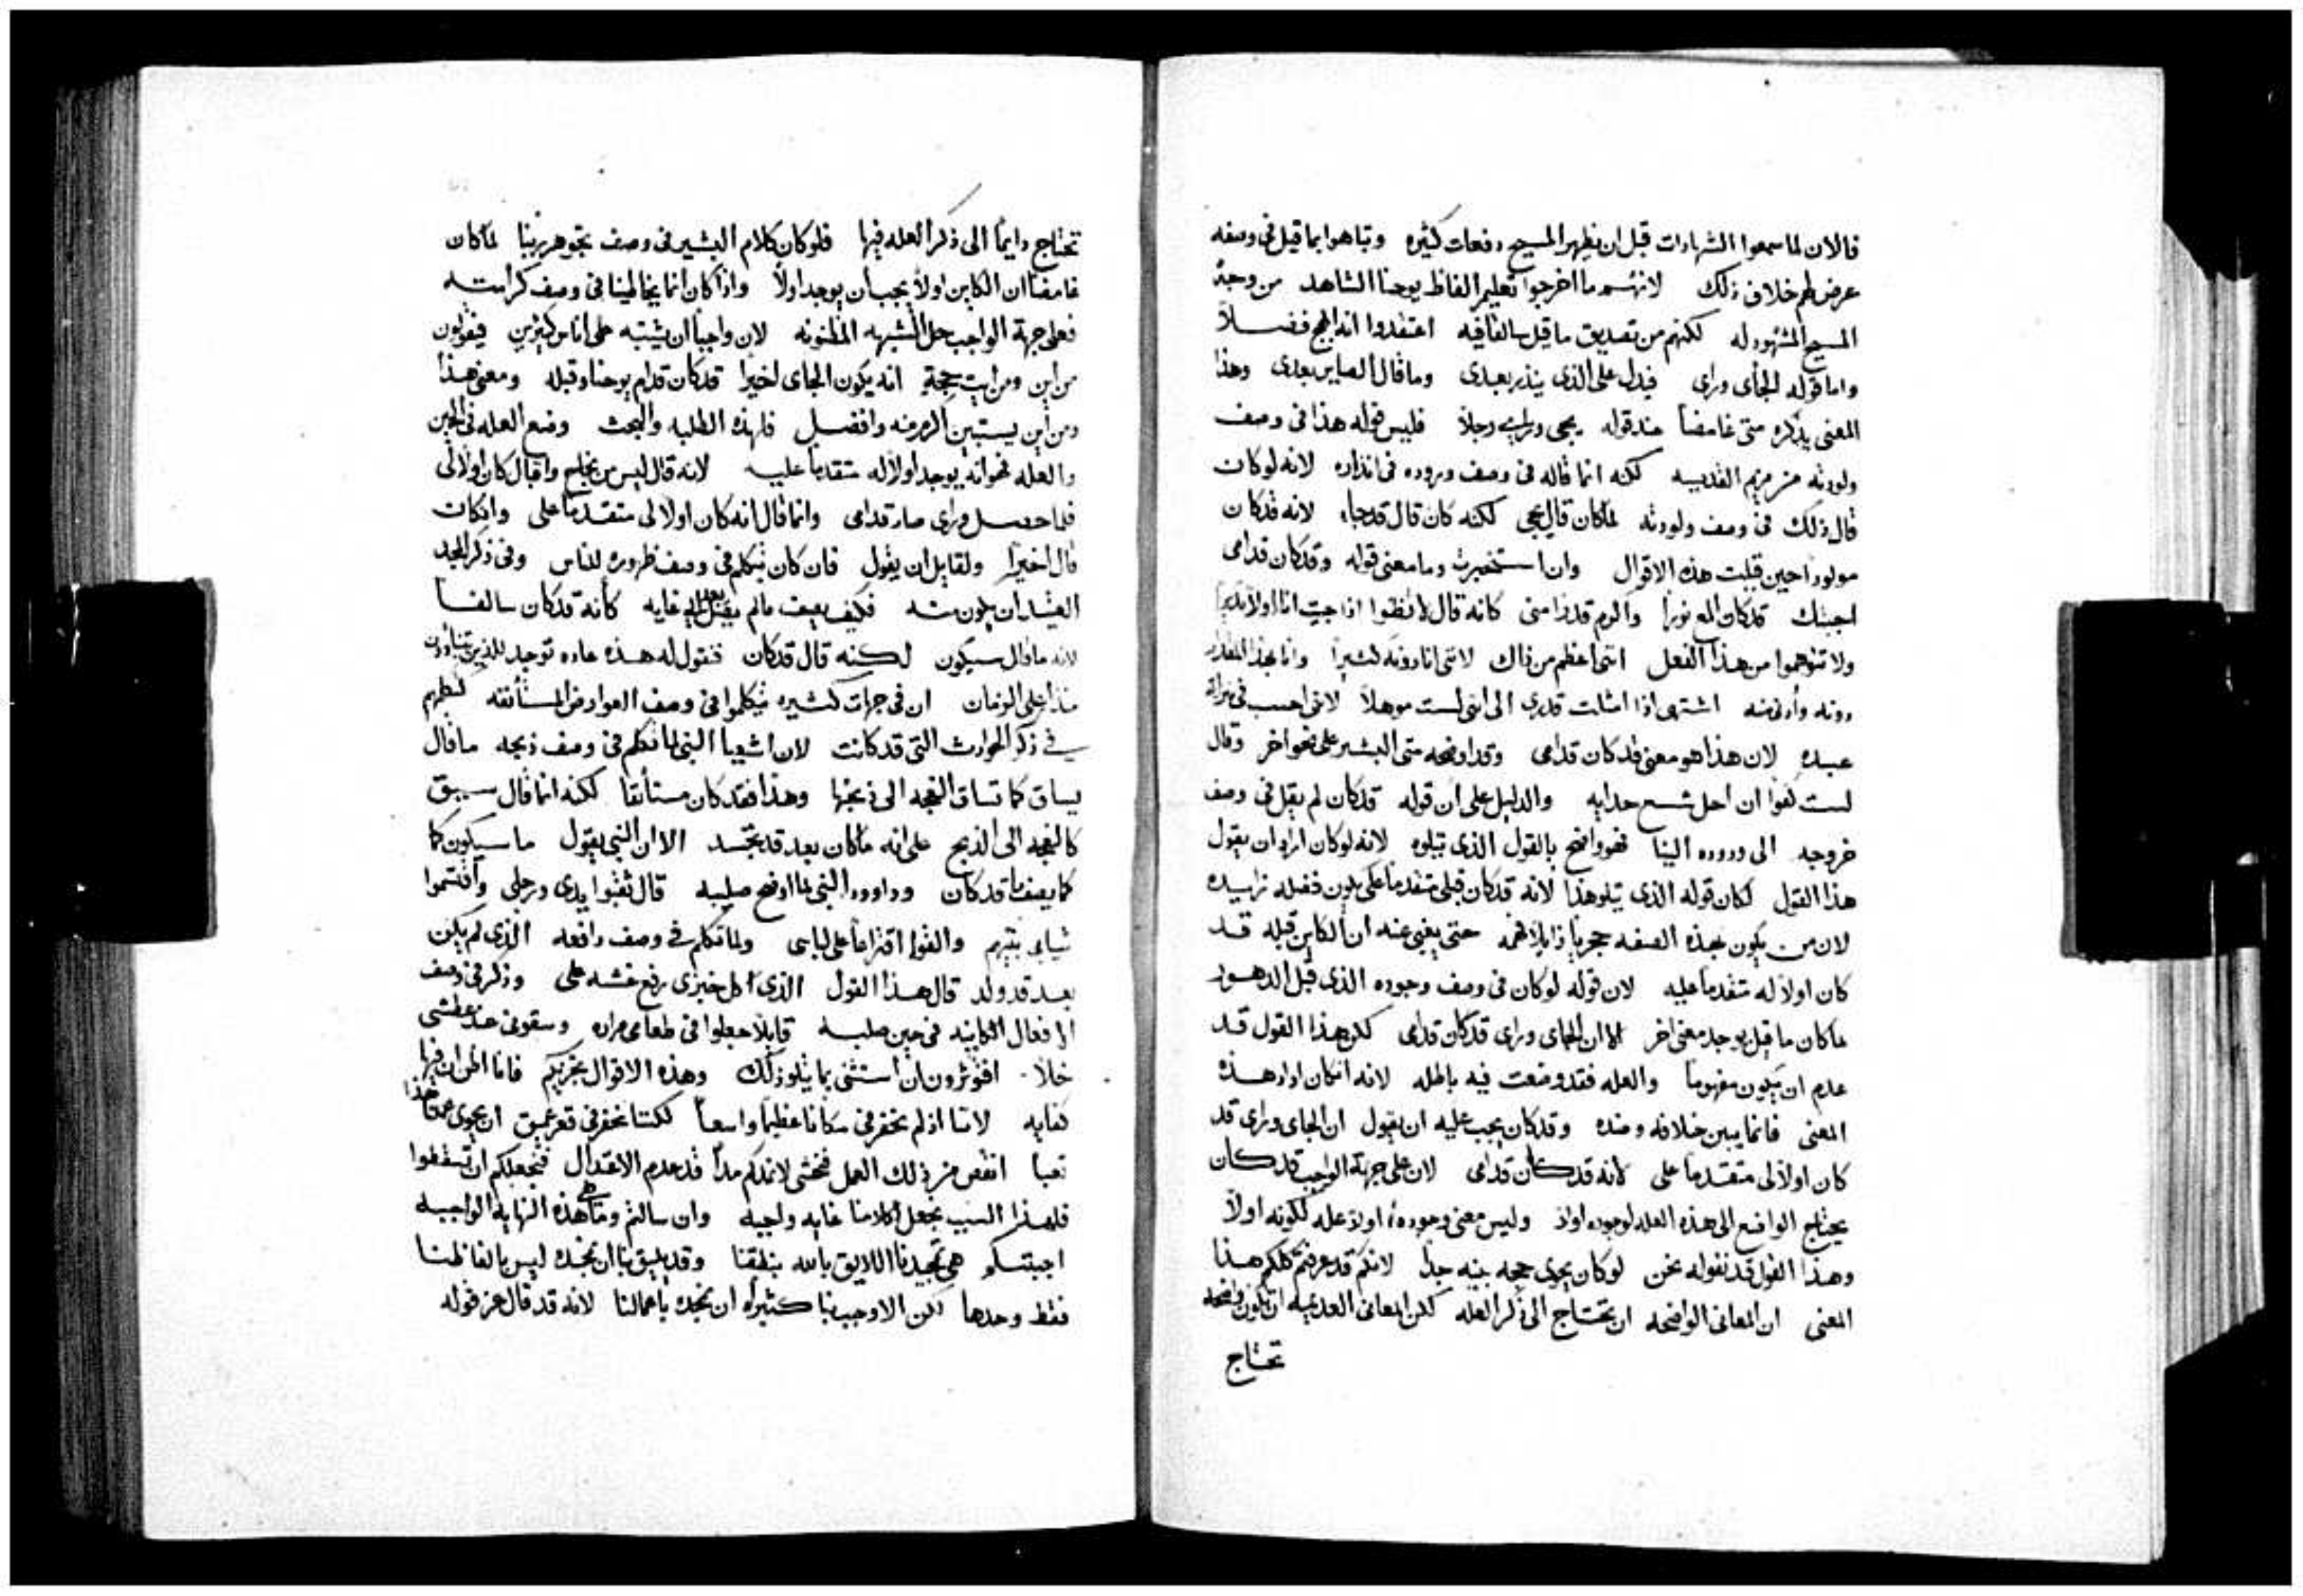 فالان لما سمعوا الشهادات قبل ان يظهر المسيح دفعات كثيره وتباهوا بما قيل فى وصفه
عرض لهم خلاف ذلك لانهم ما اخرجوا تعليم الفاظ يوحنا الشاهد من وجد
المسيح المشهود له لكنهم من تصديق ما قيل سالفا فيه اعتقدوا انه المسيح فضلاً
واما قوله الجاى وراى فيدل على الذى ينذر بعدى وما قال الصاير بعدى وهذا
المعنى يذكره متى غامضاً عند قوله يجى وراى رجلاً فليس قوله هذا فى وصف
ولودته من مريم القديسه لكنه انما قاله فى وصف وروده فى انذاره لانه لو كان
قال ذلك فى وصف ولودته لما كان قال يجى لكنه كان قال قد جاء لانه قد كان
مولوداً حين قيلت هذه الاقوال وان استخبرت وما معنى قوله وقد كان قدامى
اجبتك قد كان المع نوراً واكرم قدراً منى كانه قال لا تظنوا اذا جيت انا اولاً
ولا تتوهموا من هذا الفعل اننى اعظم من ذاك لاننى انا دونه كثيراً وانا بهذا المقدار
دونه وأدنى منه اشتهى اذا امثلت قدرى الى اننى لست موهلاً لاننى احسب فى منزلة
عبيده لان هذا هو معنى قد كان قدامى وقد اوضحه متى البشير على نحو اخر وقال
لست كفوا ان احل شسع حدايه والدليل على ان قوله قد كان لم يقل فى وصف
خروجه الى وروده الينا فهو واضح بالقول الذى يتلوه لانه لو كان اراد ان يقول
هذا القول لكان قوله الذى يتلو هذا لانه قد كان قبلى متقدماً على يكون فضله زايده
لان من يكون بهذه الصفه حتى يغبى عنه ان الكاين قبله قد
كان اولاً له متقدماً عليه لان قوله لو كان فى وصف وجوده الذى قبل الدهور
ما كان ما قيل يوجد معنى اخر الا ان الجاى وراى قد كان قدامى لكن هذا القول قد
عدم ان يكون مفهوماً والعله فقد وضعت فيه باطله لانه ان كان اراد هذه
المعنى فانما يبين خلافه وضده وقد كان يجب عليه ان يقول ان الجاى وراى قد
كان اولاً لى متقدماً على لانه قد كان قدامى لان على جهة الواجب قد كان
يحتاج الواضع الى هذه العله لوجوده اولاً وليس معنى وجوده اولاً علة لكونه اولاً
وهذا القول قد نقوله نحن لو كان يحوى حجه بينه جداً لانكم قد عرفتم كلكم هذا
المعنى ان المعانى الواضحه ان تحتاج الى ذكر العله لكن المعانى العديمه ان تكون واضحه
تحتاج
تحتاج دايماً الى ذكر العله فيها فلو كان كلام البشير فى وصف تجوهر ربنا لما كان
غامضاً ان الكاين اولاً يجب ان يوجد اولاً واذا كان انما يخاطبنا فى وصف كرامته
فعلى جهة الواجب حل الشبهه المظنونه لان واجباً ان يشتبه على اناس كثيرين فيقولون
من اين ومن ايت حجة انه يكون الجاى اخيراً قد كان قدام يوحنا وقبله ومعنى هذا
ومن اين يستبين اكرم منه وافضل فلهذه الطلبه والبحث وضع العله فى الحين
والعله فهو انه يوجد اولاً له متقدماً عليه لانه قال ليس من نجاح وا قبال كان اولاً لى
فلما حصل وراى صار قدامى وانما قال انه كان اولاً لى متقدماً على وان كان
قال اخيراً ولقايل ان يقول فان كان يتكلم فى وصف ظهوره للناس وفى ذكر المجد
العتيد ان يكون منه فكيف يصف ما لم يصل بعد الى غايه كأنه قد كان سالفاً
لانه ما قال سيكون لكنه قال قد كان فنقول له هذه عاده توجد للذين
منذ اعلى الزمان ان فى جهات كثيره يتكلموا فى وصف العوارض المستأنفه كنظمهم
فى ذكر الحوادث التى قد كانت لان اشعيا النبى لما تكلم فى وصف ذبحه ما قال
يساق كما تساق النعجه الى ذبحها وهذا فقد كان مستأنفاً لكنه انما قال سيق
كالنعجه الى الذبح على انه ما كان بعد قد تجسد الا ان النبى يقول ما سيكون كما
كما يصف ما قد كان وداوود النبى لما اوضح صلبه قال ثقبوا يدى ورجلى واقتسموا
ثيابى بينهم والقوا اقتراعاً على لباسى ولما تكلم فى وصف دافعه الذى لم يكن
بعد قد ولد قال هذا القول الذى اكل خبزى رفع غشه على وذكر فى وصف
الافعال الكاينه فى حين صلبه قايلاً جعلوا فى طعامى مراره وسقونى عند عطشى
خلاً افتوثرون ان استثنى بما يتلو ذلك وهذه الاقوال تجزيكم فانا اظن ان فيها
كفايه لاننا اذ لم نحفر فى مكاناً عظيماً واسعاً لكننا نحفر فى قعر عميق ان يحوى هذا
تعباً انقص من ذلك العمل فنخشى لا نمدكم مداً قد عدم الاعتدال فنجعلكم ان تسقطوا
فلهذا السبب نجعل لكلامنا غايه واجبه وان سالتم وما هى هذه النهاية الواجبه
اجبتكم هى تمجيدنا اللايق بالله بنطقنا وقد يليق بنا ان نمجده ليس بالفاظنا
فقط وحدها لكن الاوجب بنا كثيراً ان نمجده باعمالنا لانه قد قال عز قوله